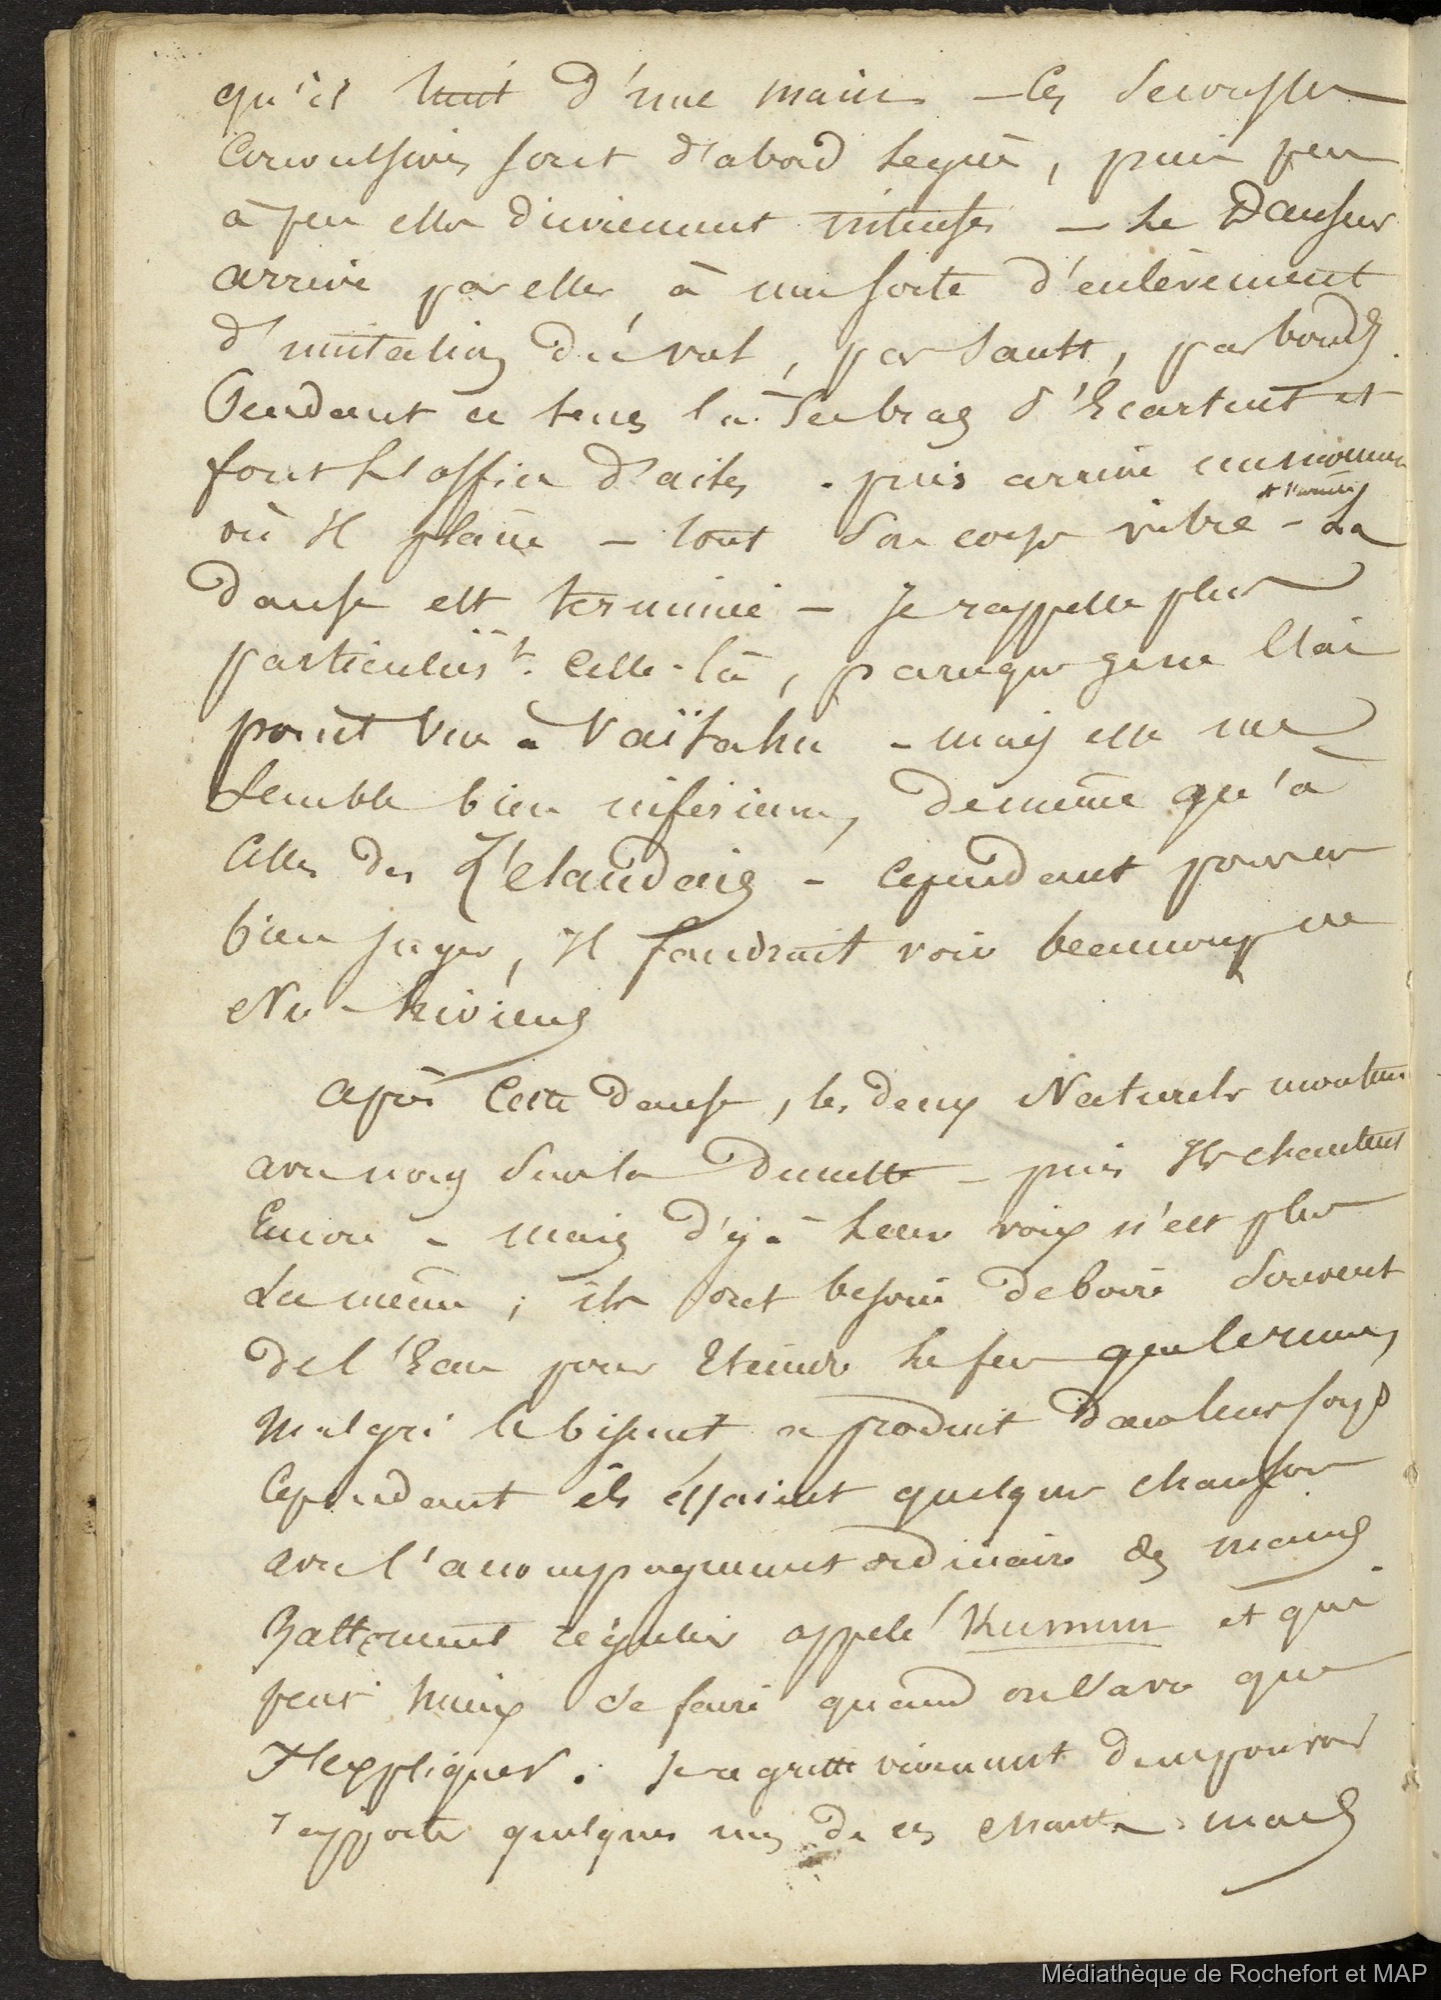 qu'il tient d'une main - les secousses
Convulsives sont d'abord legères, puis peu
à peu elles diviennent intenses - Le Danseur
arrive par elles à une sorte d'enlèvement
d'imitation du vol, par sauts, par bonds.
Pendant ce tems là ses bras s'Ecartent et
font l'office d'ailes. puis arrive un moment
où Il plâne - tout son corps vibre - La
danse est terminée - Je rappelle plus
particulièrt. celle-là, parceque je ne l'ai
point vue à Vaïtahu - mais elle me
semble bien inférieure, de même qu'à
celles des Zélandais - cependant pour en
bien juger, Il faudrait voir beaucoup de
Nu-hiviens
après cette danse, les deux Naturels montent
avec nous sur la Dunette - puis Ils chantent
Encore - mais déjà leur voix n'est plus
La même; ils ont besoin de boire souvent
de l'Eau pour Eteindre le feu que le rhum,
malgré le biscuit, a produit dans leur corps
Cependant ils éssaient quelques chansons
avec l'accompagnement ordinaire des mains
Battement régulier appelé Kumum et qui
peut mieux se faire quand on l'a vu que
s'expliquer. Je regrette vivement de ne pouvoir
rapporter quelques uns de ces chants - mais
Médiathèque de Rochefort et MAP